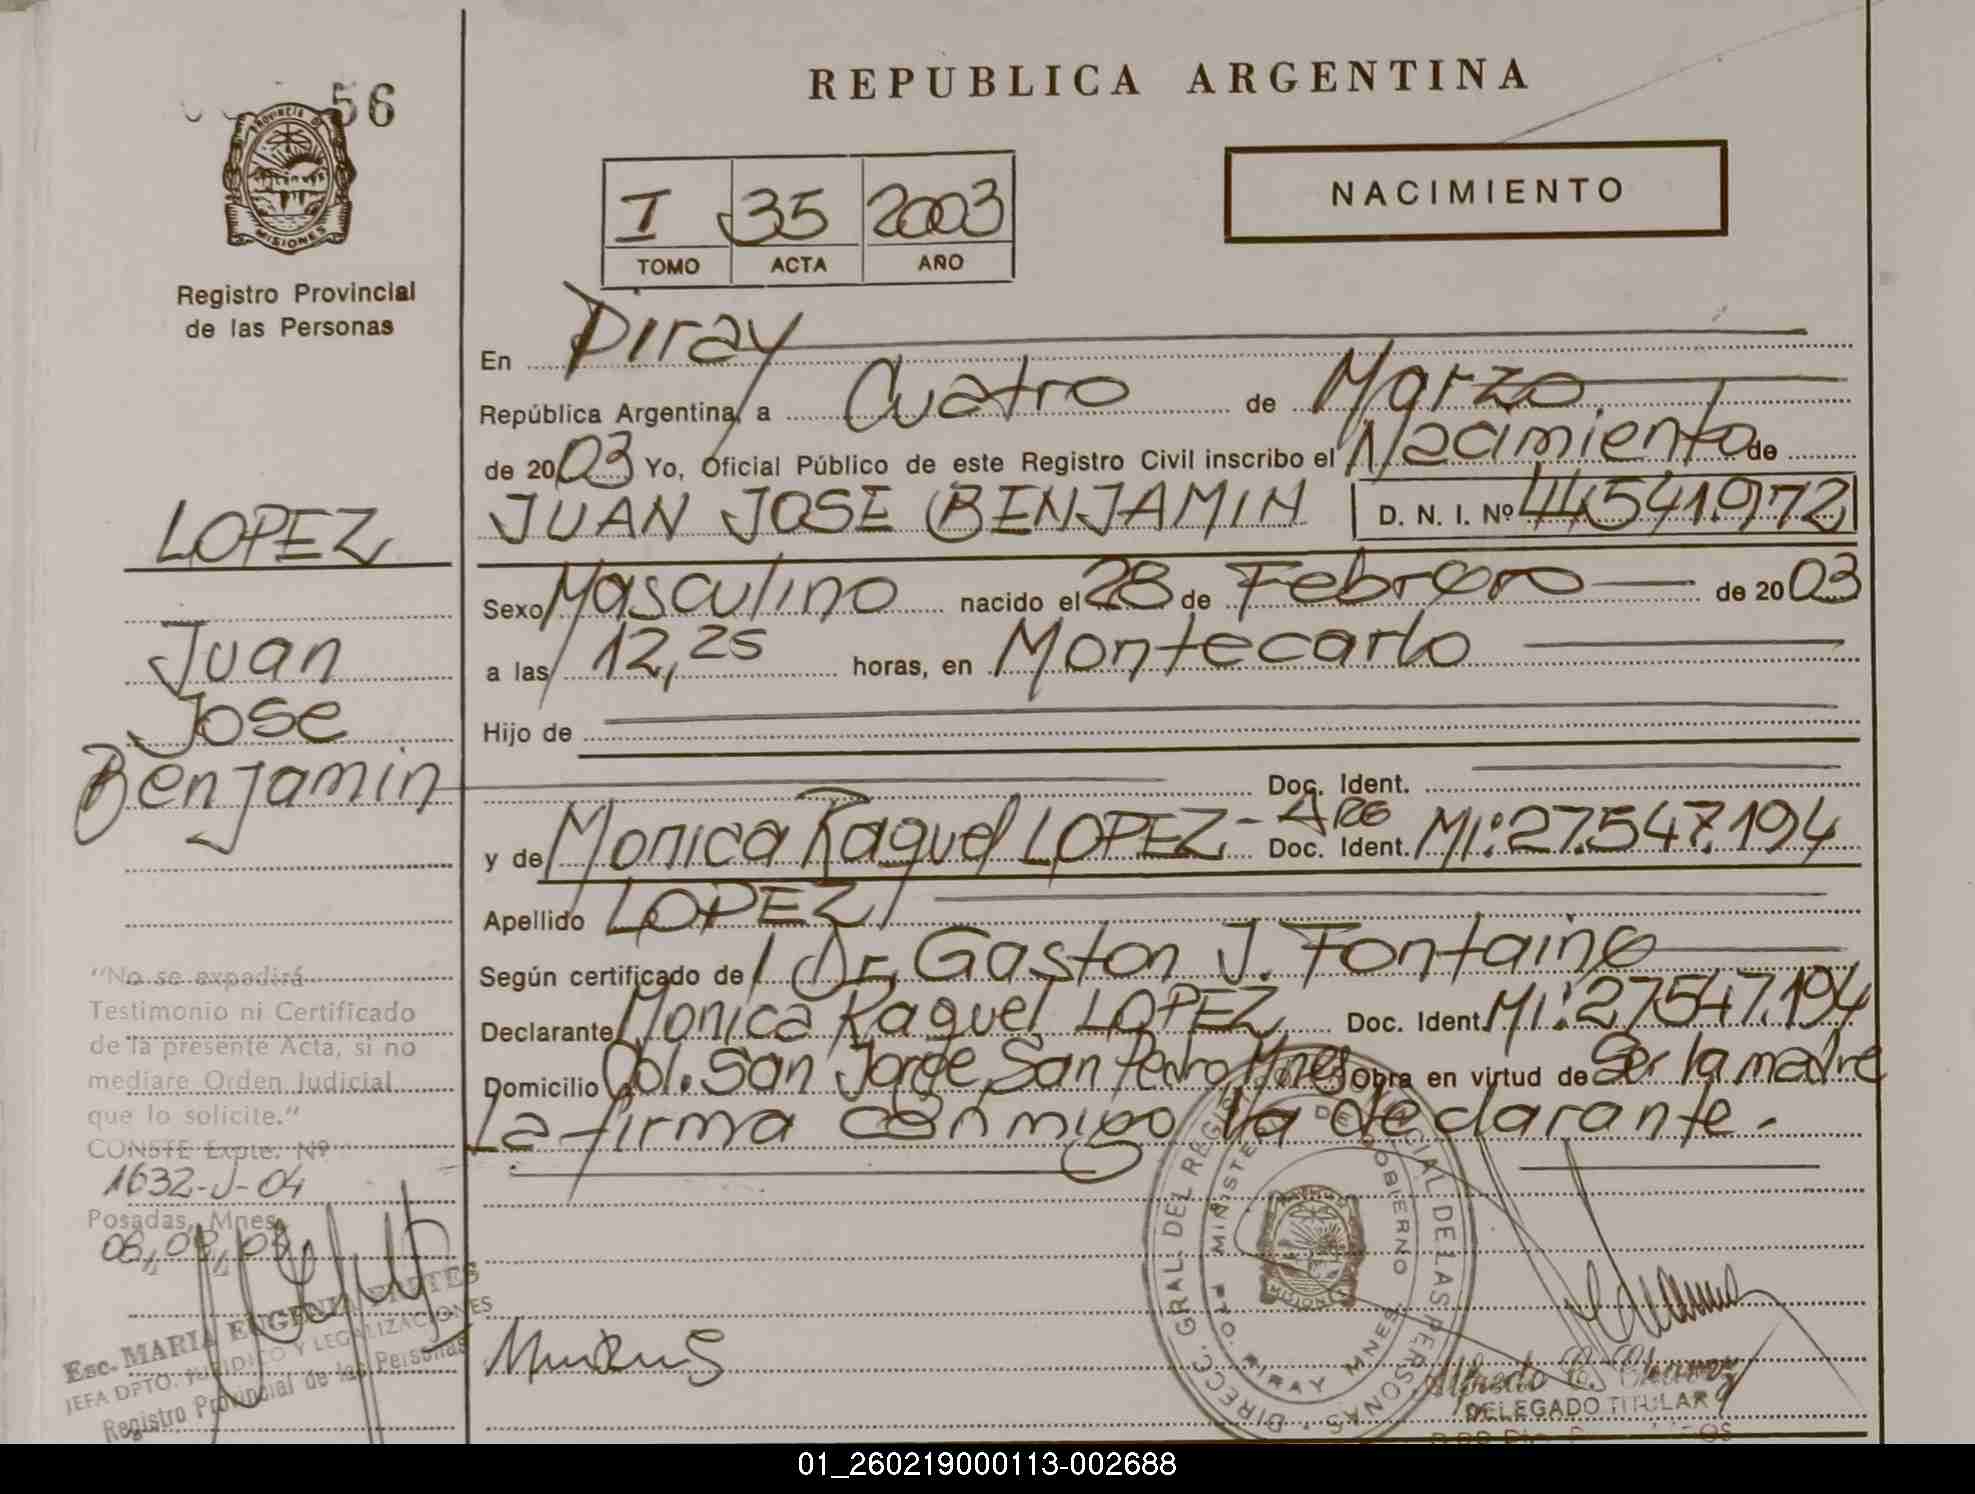 56
PROVINCIA D
MISIONES
Registro Provincial
de las Personas
LOPEZ
Juan
Jose
Benjamin
"No se expedirá
Testimonio ni Certificado
de la presente Acta, si no
mediare Orden Judicial
que lo solicite."
CONSTE Expte. Nº
1632-J-04
Posadas, Mnes.
Esc. MARIA EUGENIA
JEFA DPTO. JURIDICO Y LEGALIZACIONES
Registro Provincial de las Personas
REPUBLICA ARGENTINA
NACIMIENTO
I 35 2003
TOMO ACTA AÑO
En Piray
República Argentina, a Cuatro de Marzo
de 2003 Yo, Oficial Público de este Registro Civil inscribo el Nacimiento de
JUAN JOSE BENJAMIN D. N. I. Nº 44541.972
Sexo Masculino nacido el 28 de Febrero de 2003
a las 12,25 horas, en Montecarlo
Hijo de
Doc. Ident.
y de Monica Raquel LOPEZ - ARG Doc. Ident. MI: 27.547.194
Apellido LOPEZ
Según certificado de Dr. Gaston J. Fontaine
Declarante Monica Raquel LOPEZ Doc. Ident. MI: 27547.194
Domicilio Col. San Jorge, San Pedro, Mnes Obra en virtud de Ser la madre
La firma conmigo la declarante.-
DIRECC. GRAL. DEL REGISTRO PROVINCIAL DE LAS PERSONAS
MINISTERIO DE GOBIERNO
PTO. PIRAY MNES
MISIONES
Alfredo C.
DELEGADO TITULAR
01_260219000113-002688